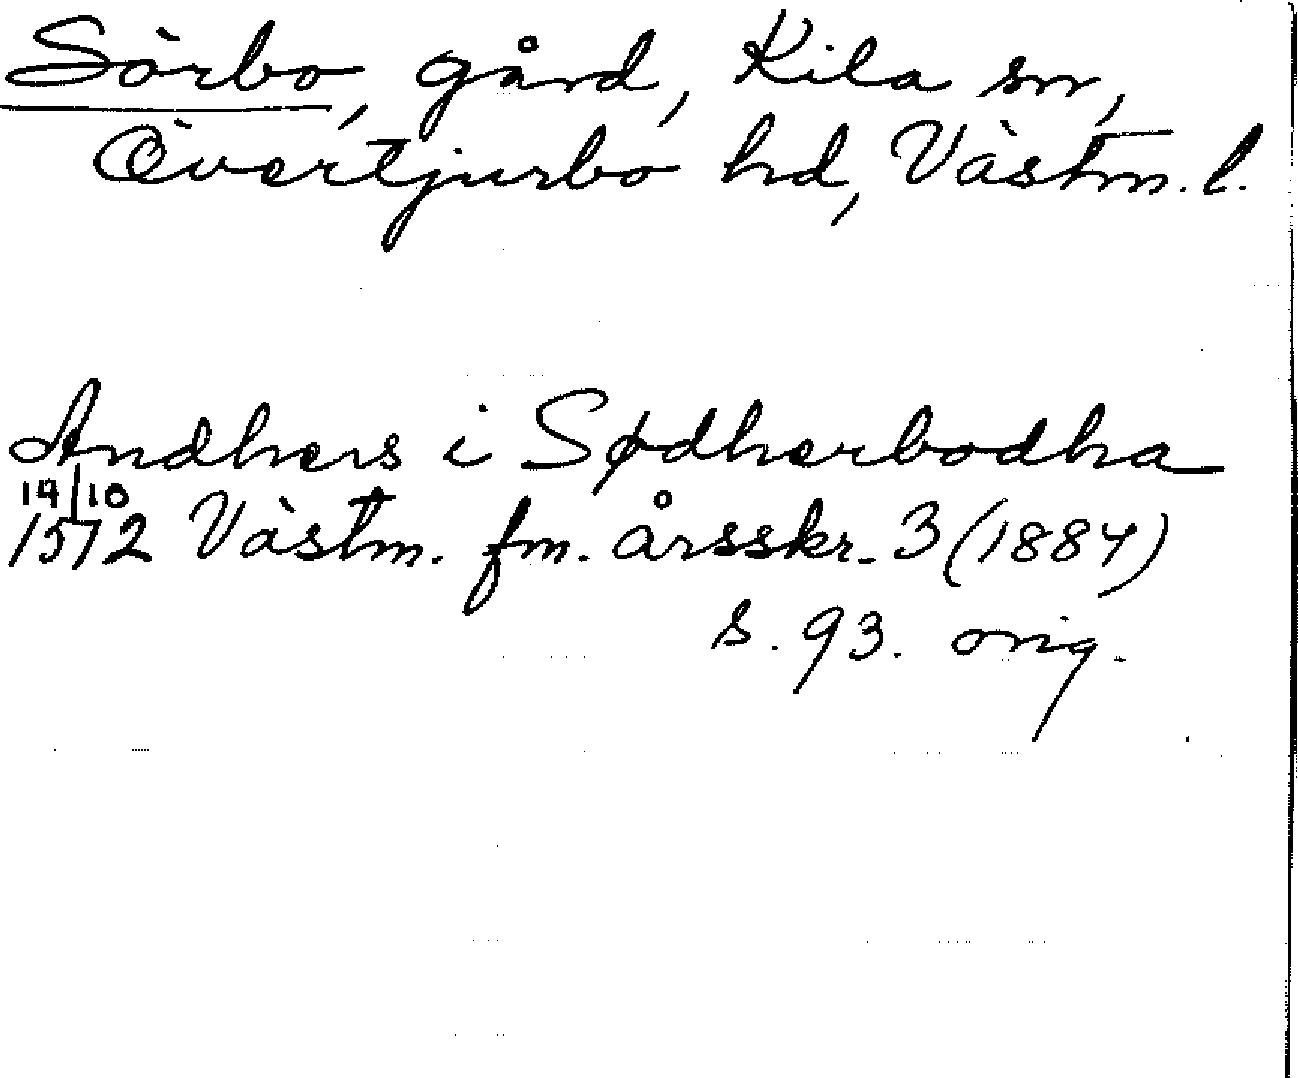 Sörbo, gård, Kila sn,
Övertjurbo hd, Västm. l.
Andhers i Sødherbodha
14/10
1572 Västm. fm. årsskr. 3 (1884)
s. 93. orig.